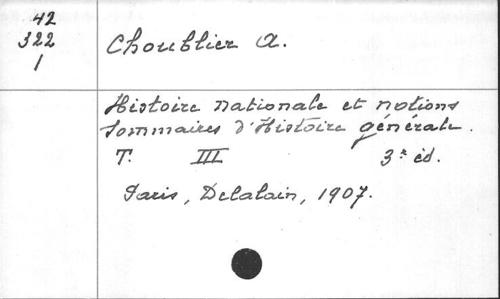 42
322
1
Choublier A.
Histoire nationale et notions
sommaires d'Histoire générale.
T. III 3e éd.
Paris, Delalain, 1907.